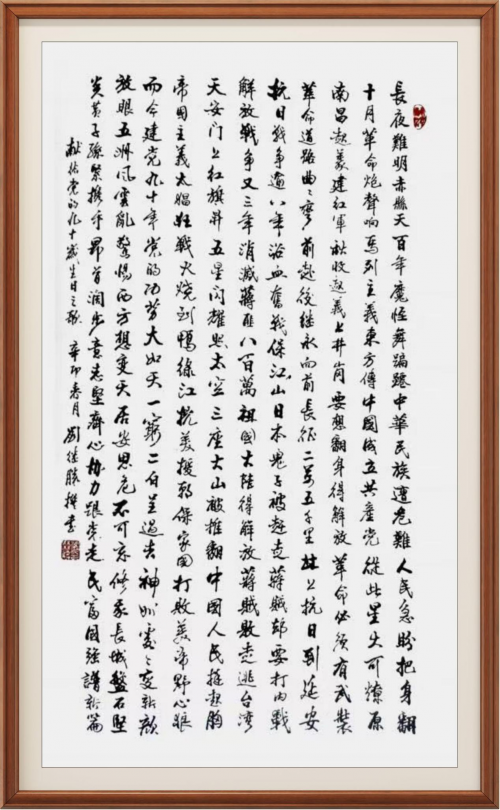 長夜難明赤縣天百年魔怪舞蹁躚中華民族遭危難人民急盼把身翻
十月革命炮聲响馬列主義東方傳中國成立共產党從此星火可燎原
南昌起義建紅軍秋收起義上井崗要想翻身得解放革命必須有武裝
革命道路曲々彎前赴後继永向前長征二萬五千里北上抗日到延安
抗日戰争這八年浴血奮战保江山日本鬼子被赶走蔣賊却要打内戰
解放戰争又三年消滅蔣匪八百萬祖國大陸得解放蔣賊敗走逃台湾
天安门上红旗升五星闪耀照太空三座大山被推翻中國人民挺起胸
帝國主義太猖狂戰火烧到鴨綠江抗美援朝保家国打敗美帝野心狼
而今建党九十年党的功劳大如天一窮二白已過去神州處々变新颜
放眼五洲風雲亂警惕西方想变天居安思危不可忘修我長城盤石堅
炎黄子孫緊携手昂首阔步意志堅齊心协力跟党走民富國強譜新篇
献给党的九十歲生日之歌 辛卯春月 劉继勝撰书